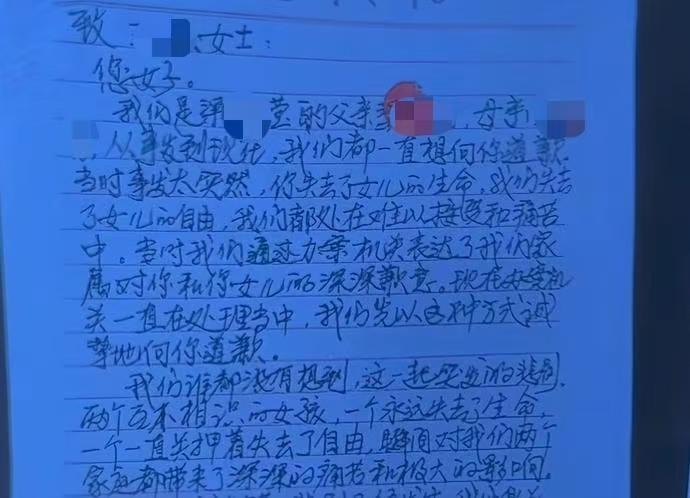 致：女士：
您好。
我们是泽莹的父亲，母亲
从事发到现在，我们都一直想向你道歉
当时事发太突然，你失去了女儿的生命，我们失去
了女儿的自由，我们都处在难以接受和痛苦
中。当时我们通过办案机关表达了我们家
属对你和你女儿的深深歉意。现在办案机
关一直在处理当中，我们先以这种方式诚
挚地向你道歉。
我们谁都没有想到，这一起突发的悲剧，
两个互不相识的女孩，一个永远失去了生命，
一个一直关押着失去了自由，瞬间对我们两个
家庭都带来了深深的痛苦和极大的影响。